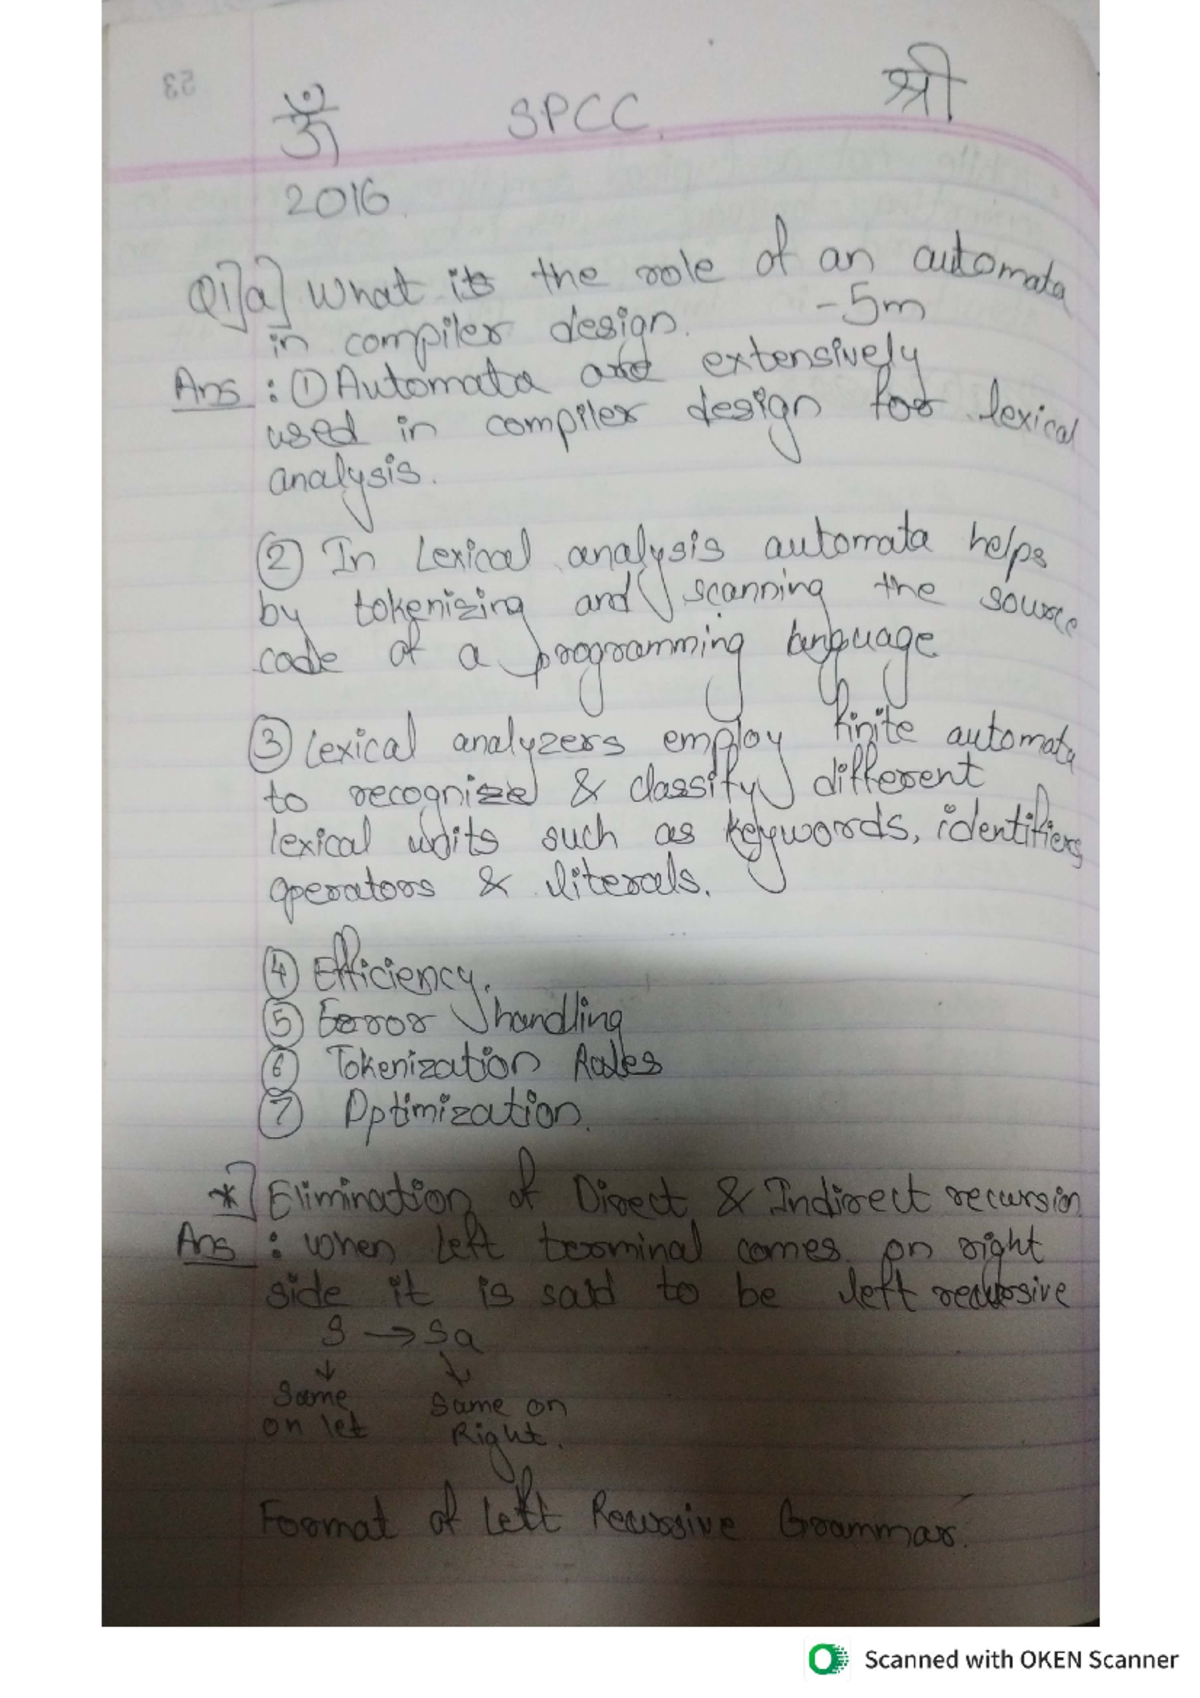 53
ॐ SPCC. श्री
2016.
Q1]a] What is the role of an automata
in compiler design. -5m
Ans : ① Automata are extensively
used in compiler design for lexical
analysis.
② In Lexical analysis automata helps
by tokenizing and scanning the source
code of a programming language
③ Lexical analyzers employ finite automata
to recognize & classify different
lexical units such as keywords, identifiers
operators & literals.
④ Efficiency.
⑤ Error handling
⑥ Tokenization Rules
⑦ Optimization.
*] Elimination of Direct & Indirect recursion
Ans : When left terminal comes on right
side it is said to be left recursive
S → Sa
↓ ↓
Same Same on
on let Right.
Format of Left Recursive Grammar.
Scanned with OKEN Scanner